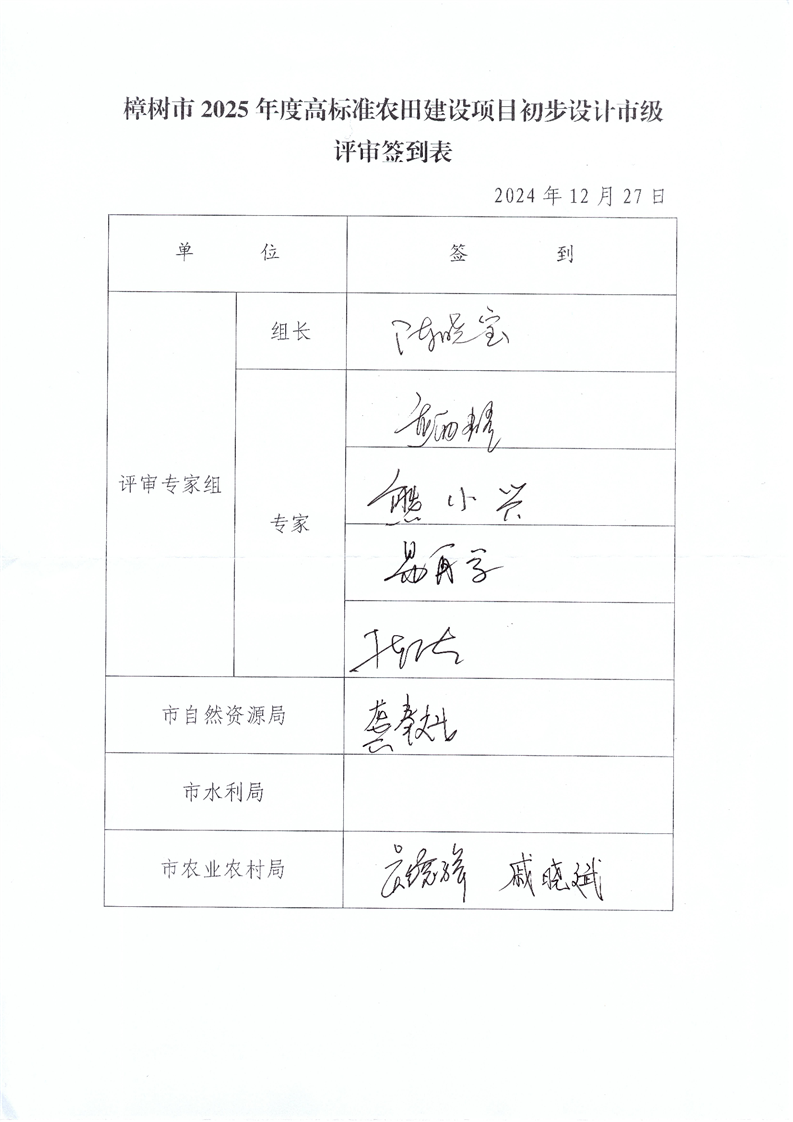 樟树市 2025 年度高标准农田建设项目初步设计市级
评审签到表
2024 年 12 月 27 日
单 位 签 到
组长 陈晓宝
评审专家组
熊 小 兴
专家
易再学
市自然资源局
市水利局
市农业农村局 戚晓斌